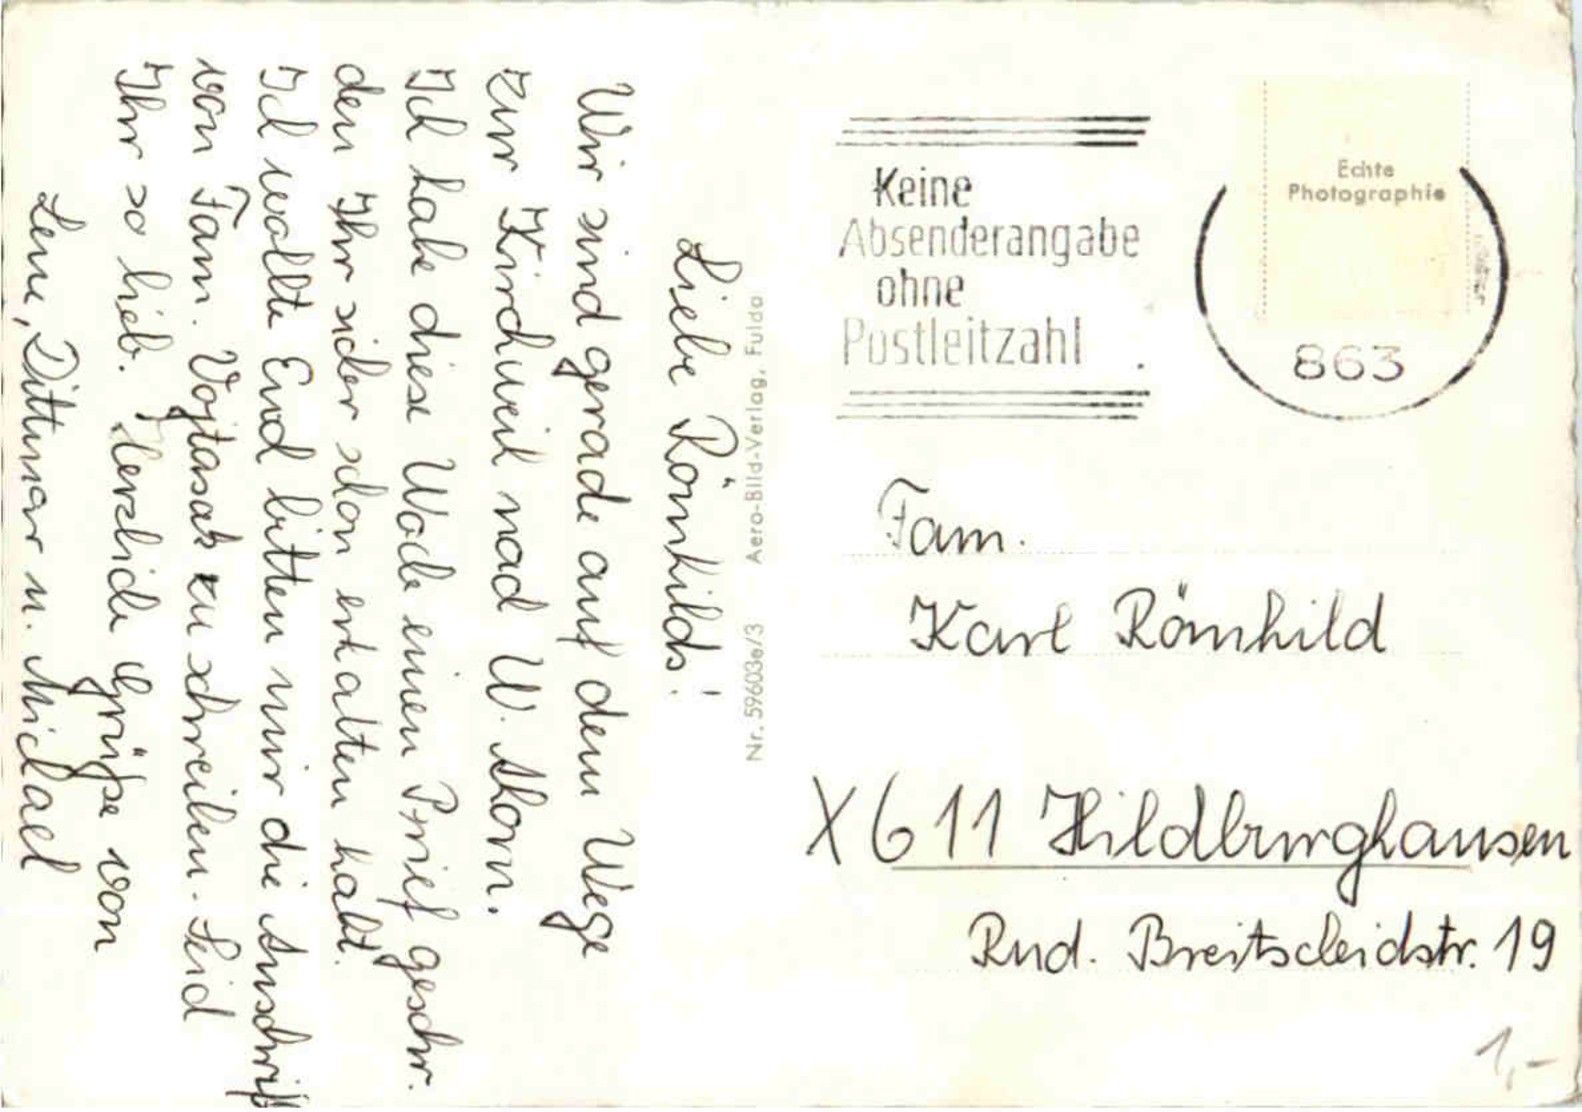 Liebe Römhilds!
Wir sind gerade auf dem Wege
zur Kirchweih nach U.
Ich habe diese Woche einen Brief geschr.
den Ihr sicher schon erhalten habt.
Ich wollte Euch bitten mir die Anschrift
von Fam. Vojtasak zu schreiben. Seid
Ihr so lieb. Herzliche Grüße von
Leni, Dittmar u. Michael
Nr. 59603e/3 Aero-Bild-Verlag, Fulda
Keine
Absenderangabe
ohne
Postleitzahl
Echte
Photographie
863
Fam.
Karl Römhild
X611 Hildburghausen
Rud. Breitscheidstr. 19
1,-